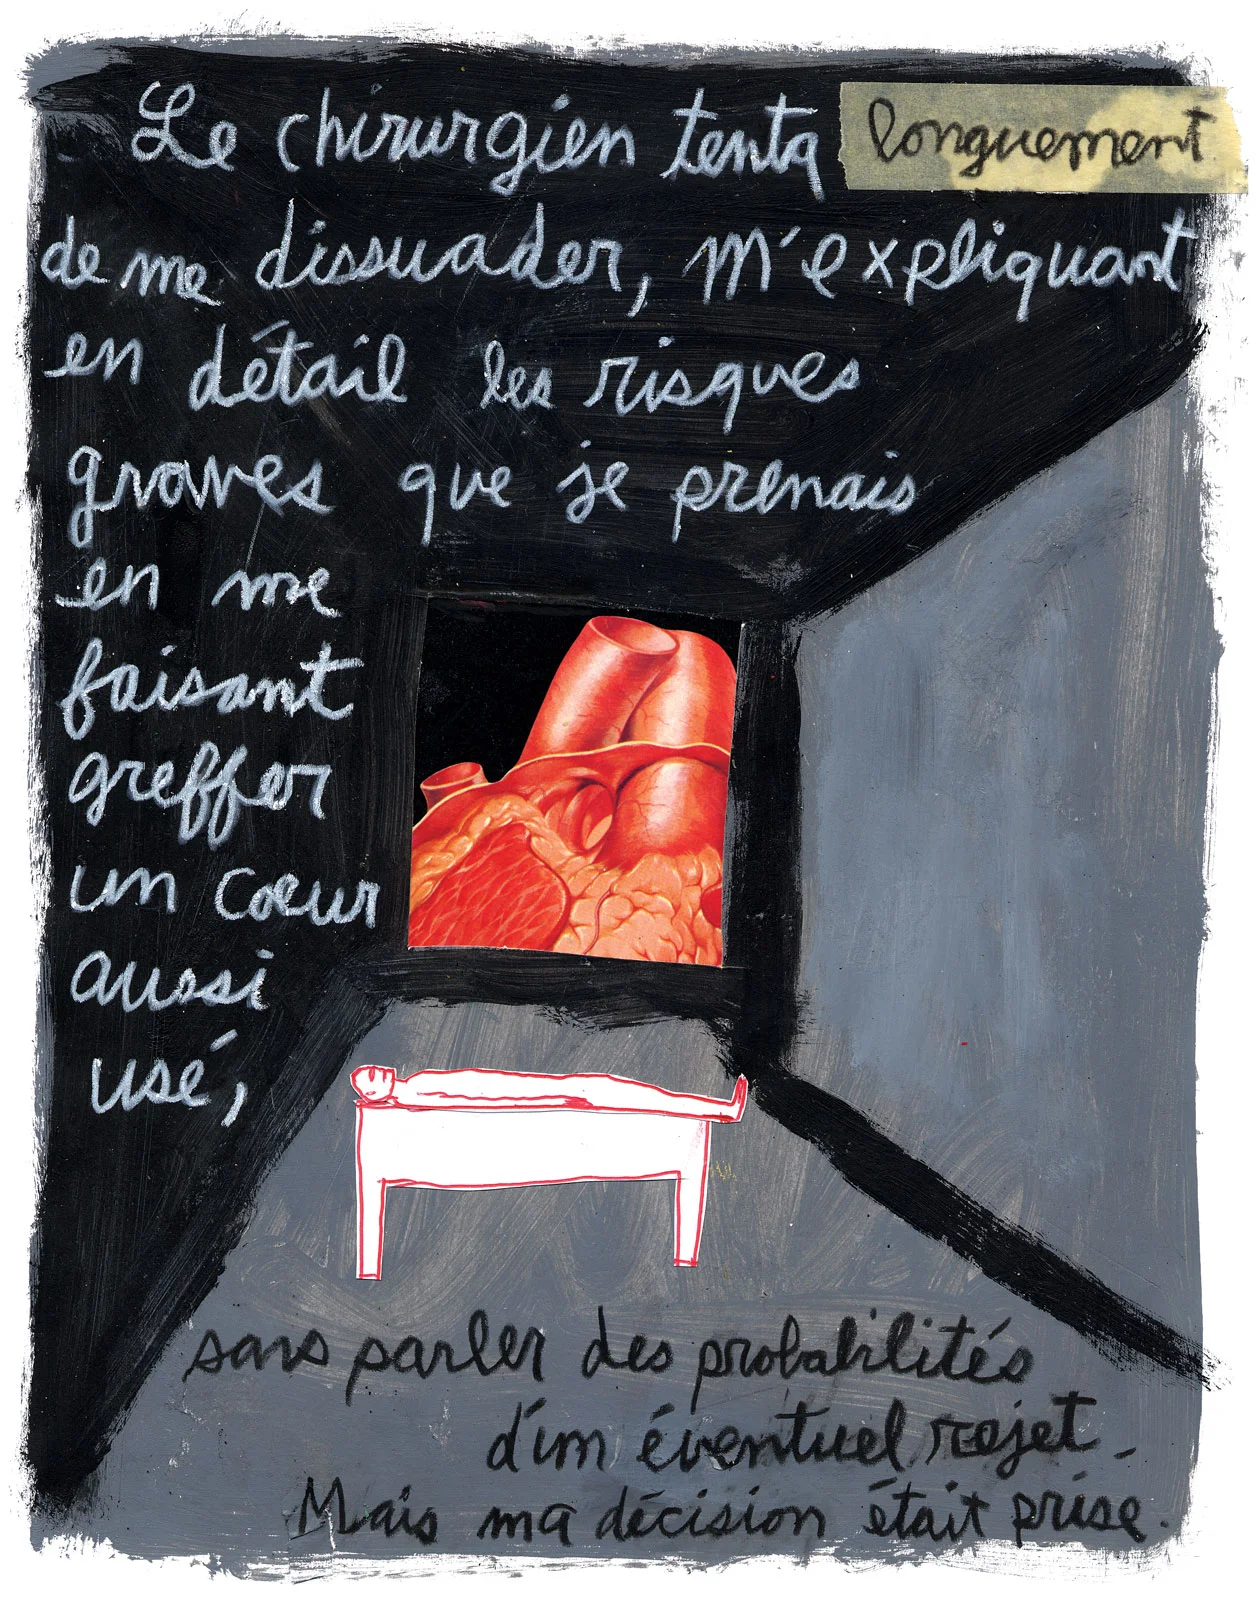 Le chirurgien tenta longuement
de me dissuader, m'expliquant
en détail les risques
graves que je prenais
en me
faisant
greffer
un cœur
aussi
usé,
sans parler des probabilités
d'un éventuel rejet.
Mais ma décision était prise.